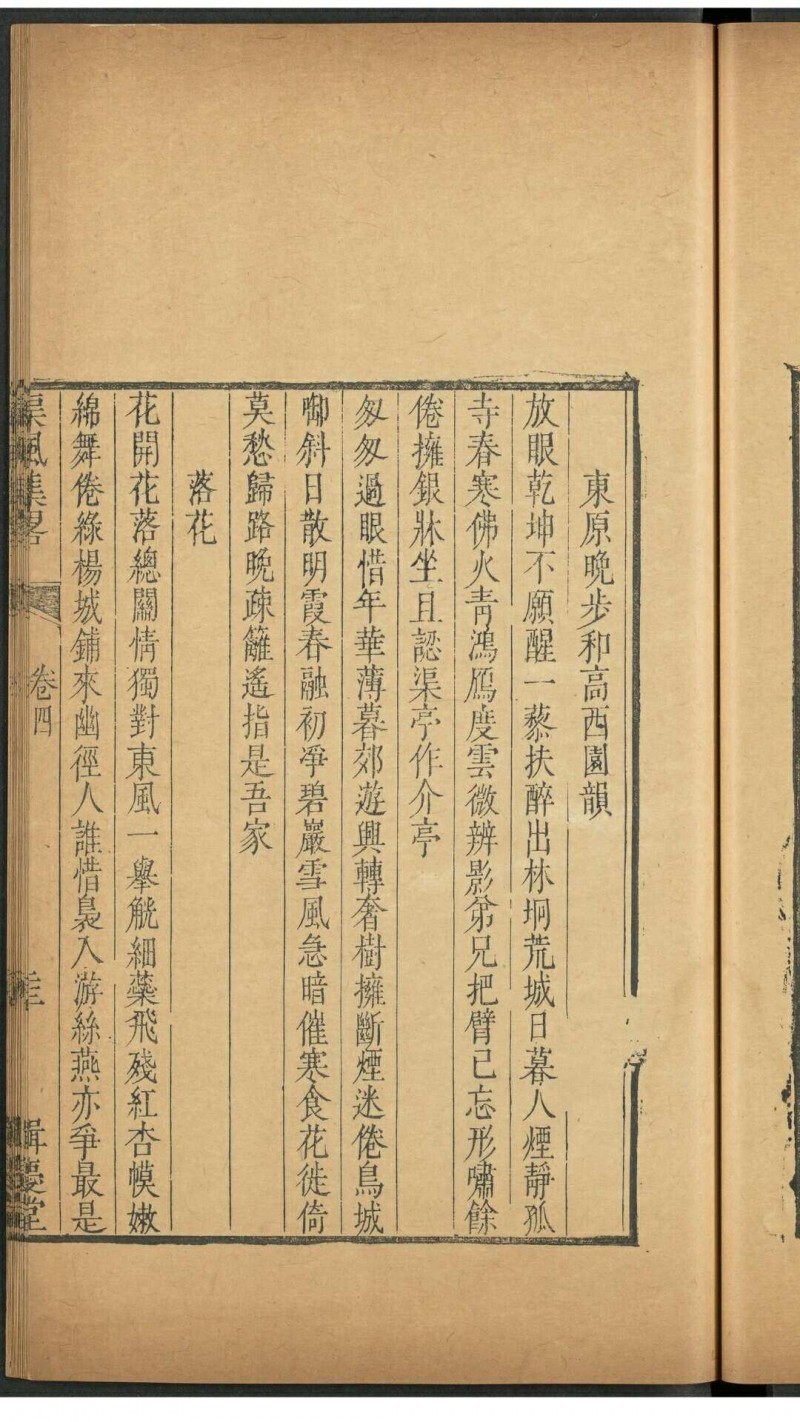 東原晚步和高西園韻
放眼乾坤不願醒一藜扶醉出林坰荒城日暮人煙靜孤
寺春寒佛火靑鴻鴈度雲微辨影弟兄把臂已忘形嘯餘
倦擁銀牀坐且認渠亭作介亭
匆匆過眼惜年華薄暮郊遊興轉奢樹擁斷煙迷倦鳥城
啣斜日散明霞春融初凈碧巖雪風急暗催寒食花徙倚
莫愁歸路晚疎籬遙指是吾家
落花
花開花落總關情獨對東風一舉觥細蘂飛殘紅杏幙嫩
綿舞倦綠楊城鋪來幽徑人誰惜裊入游絲燕亦爭最是
渠風集畧
卷四
緝慶堂